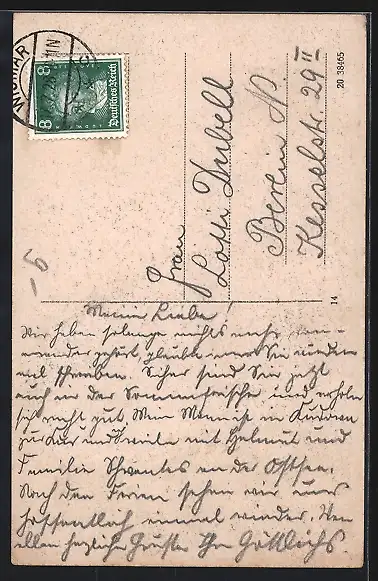 WISMAR
8 Deutsches Reich 8
Frau
Lotti Dubell
Berlin N.
Kesselstr. 29 II
20 38465
14
-6
Meine Liebe!
Wir haben solange nichts mehr von-
einander gehört, glaube immer Sie würden
mal schreiben. Sicher sind Sie jetzt
auch in der Sommerfrische und erholen
sich recht gut. Mein Mann ist in Kudowa
zur Kur und ich weile mit Helmut und
Familie Schwentes an der Ostsee.
Nach den Ferien sehen wir uns
hoffentlich einmal wieder. Von
allen herzliche Grüsse Ihre Göttlichs.